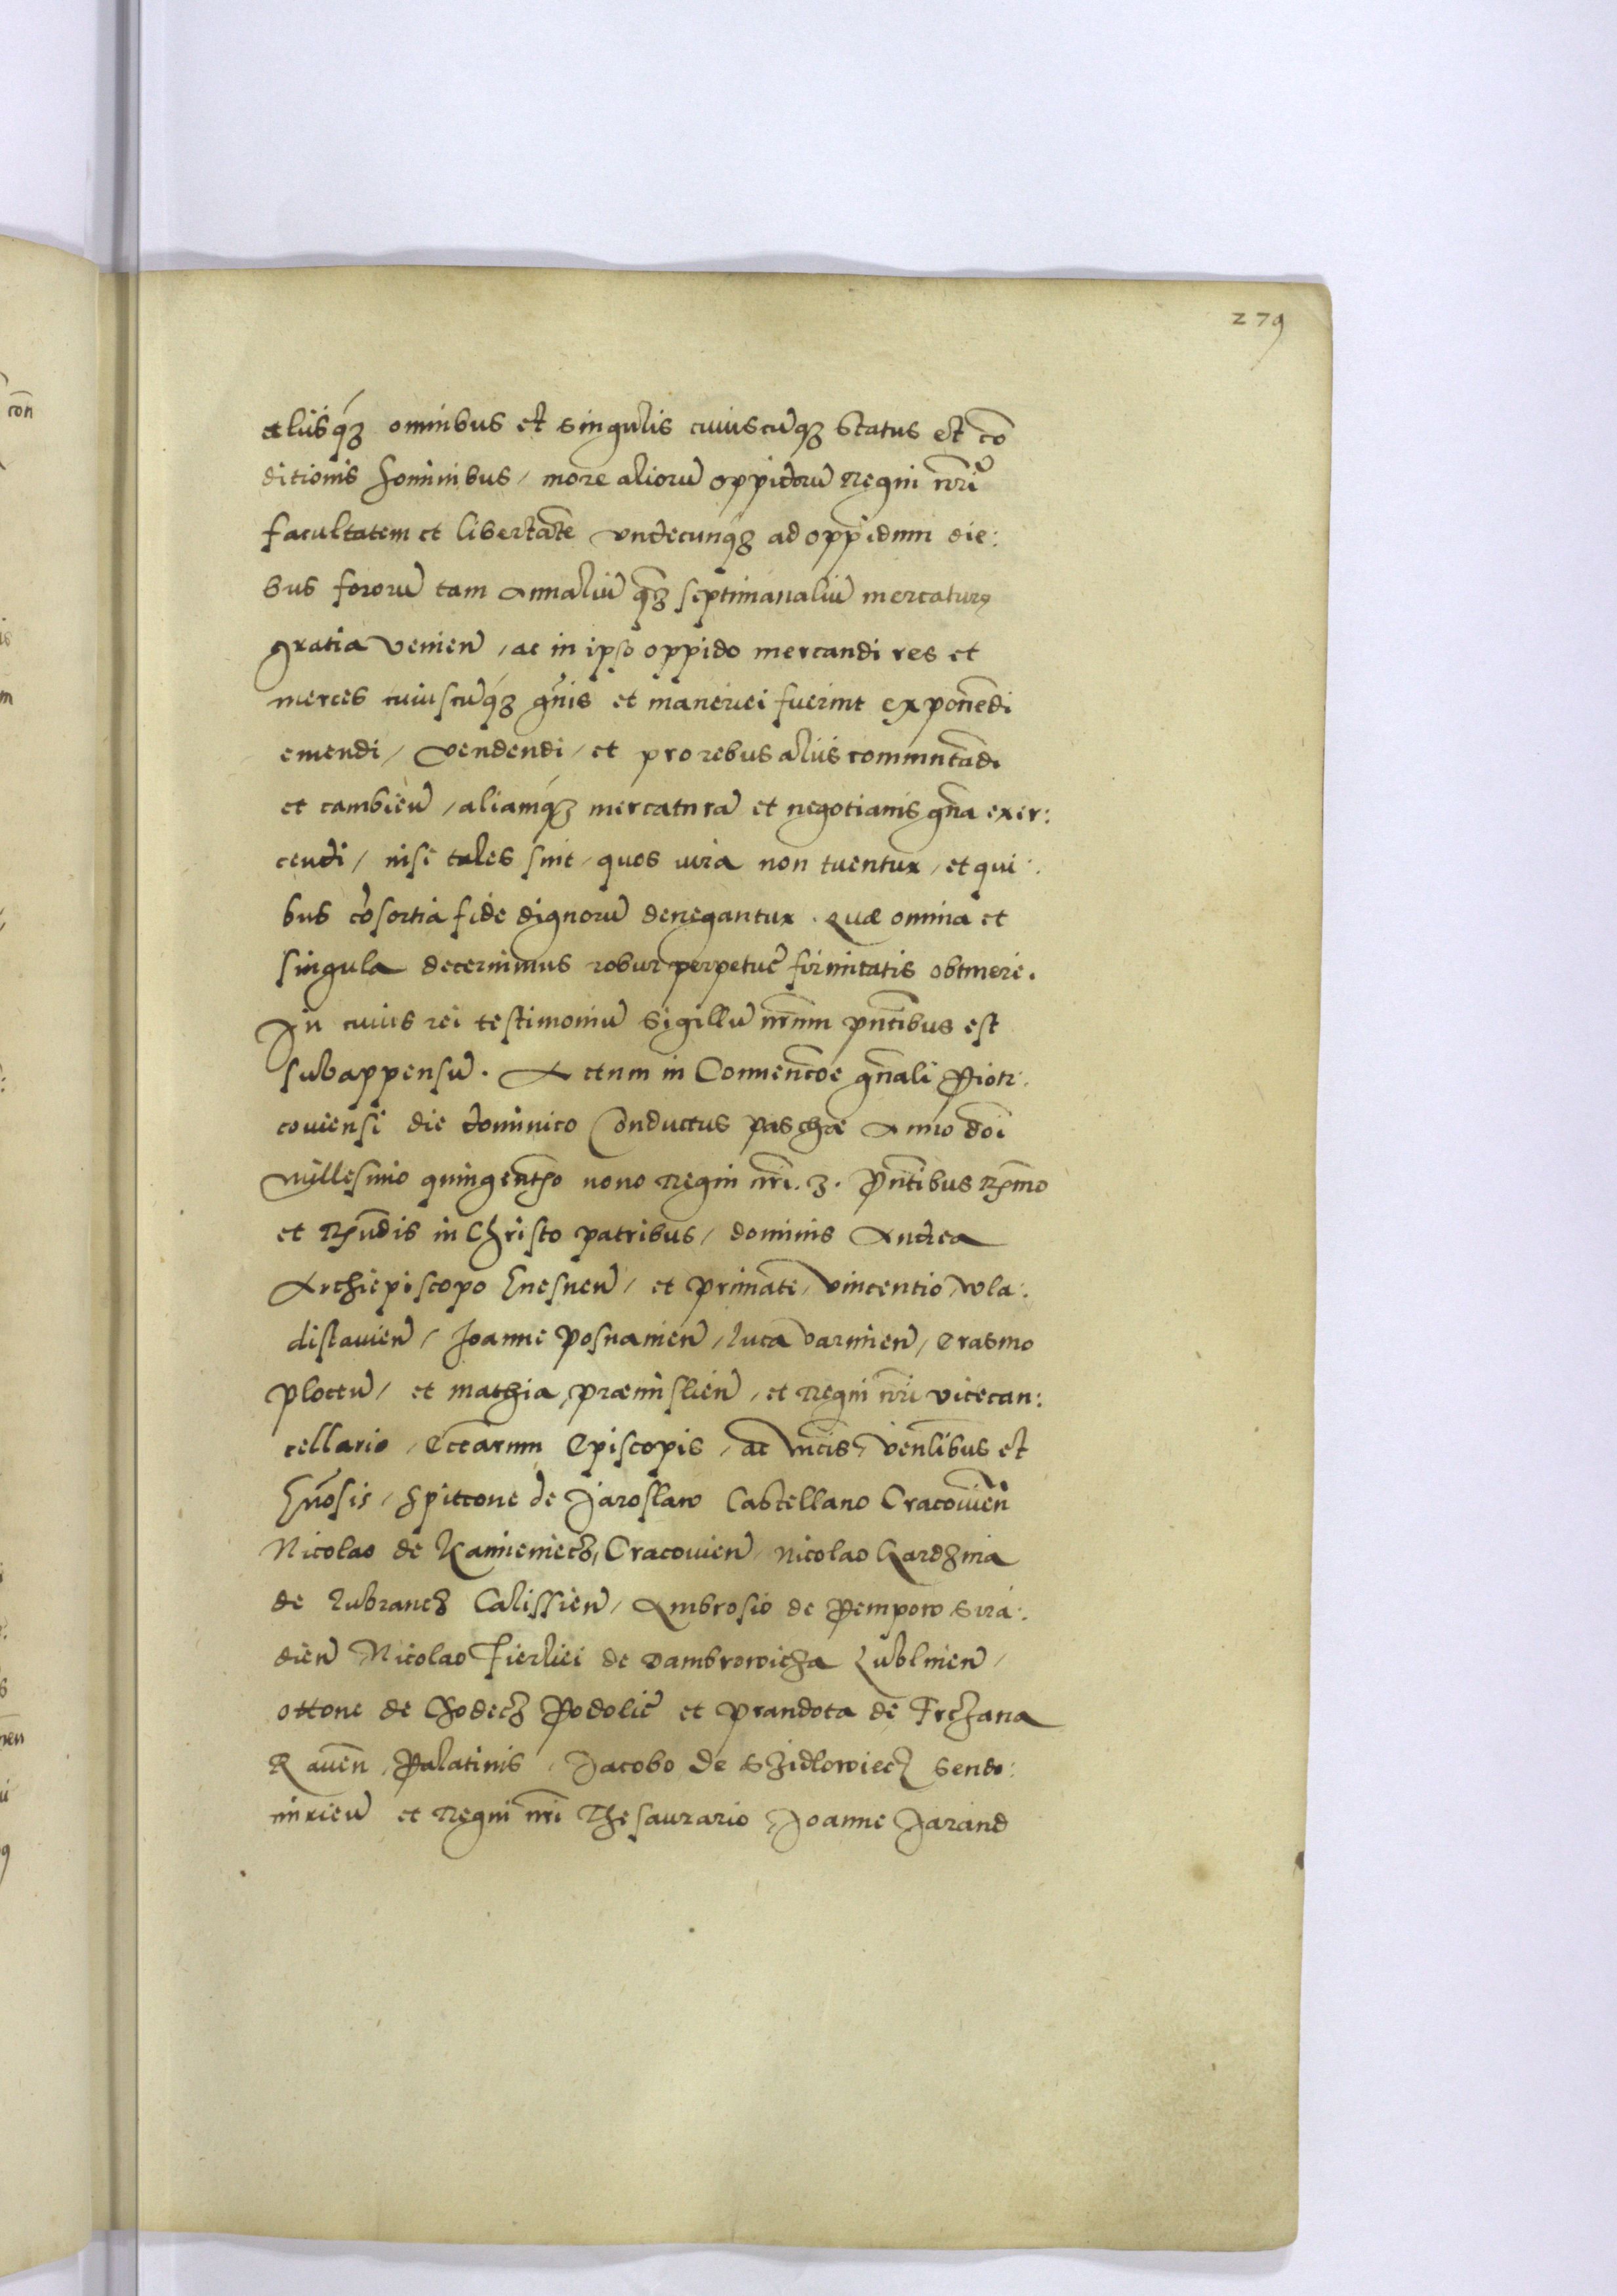 279
aliisq́ꝫ omnibus et singulis cuiuscũqꝫ status et cõ
ditionis hominibus / more aliorũ oppidorũ Regni nr̃i
facultatem et libertatẽ vndecunqꝫ ad oppidum die:
bus fororũ tam annaliũ q̃ꝫ septimanaliũ mercaturę
gratia venien̄ / ac in ipso oppido mercandi res et
merces cuiuscũqꝫ gñis et maneriei fuerint exponẽdi
emendi / vendendi / et pro rebus aliis commutãdi
et cambien̄ / aliamq́ꝫ mercaturã et negotianis gñа exer:
cendi / nisi tales sint / quos iura non tuentur / et qui:
bus cõsortia fide dignorũ denegantur . Quæ omnia et
singula decernimus robur perpetuę firmitatis obtinere .
In cuius rei testimoniũ sigillũ nr̃um pñtibus est
subappensũ . Actum in Conuencõe gñali Piotr:
couiensi die dominico Conductus paschæ Anno dñi
Millesimo quingentẽo nono Regni nr̃i . 3 . Pñtibus Rx̃mo
et Rx̃ndis in Christo patribus / dominis Andrea
Archiepiscopo Gnesnen̄ / et primate / Vincentio Wla:
dislauien̄ / Joanne Posnanien̄ / Luca Varmien̄ / Erasmo
Plocen̄ / et Mathia Præmislien̄ / et Regni nr̃i vicecan:
cellario / Ecc̃arum Episcopis / ac Mcĩs / Venlĩbus et
Gñosis / Spitcone de Jaroslaw Castellano Cracouien̄
Nicolao de Kamieniecz / Cracouien̄ / Nicolao Gardzina
de Lubrancz Calissien̄ / Ambrosio de Pempowo Sira:
dien̄ Nicolao Firliei de Dambrowicza Lublinen̄ /
Ottone de Chodecz Podolię et Prandota de Trczana
Rauen̄ Palatinis / Jacobo de Szidlowiecz Sendo:
mirien̄ et Regni nr̃i Thesaurario Joanne Jarand